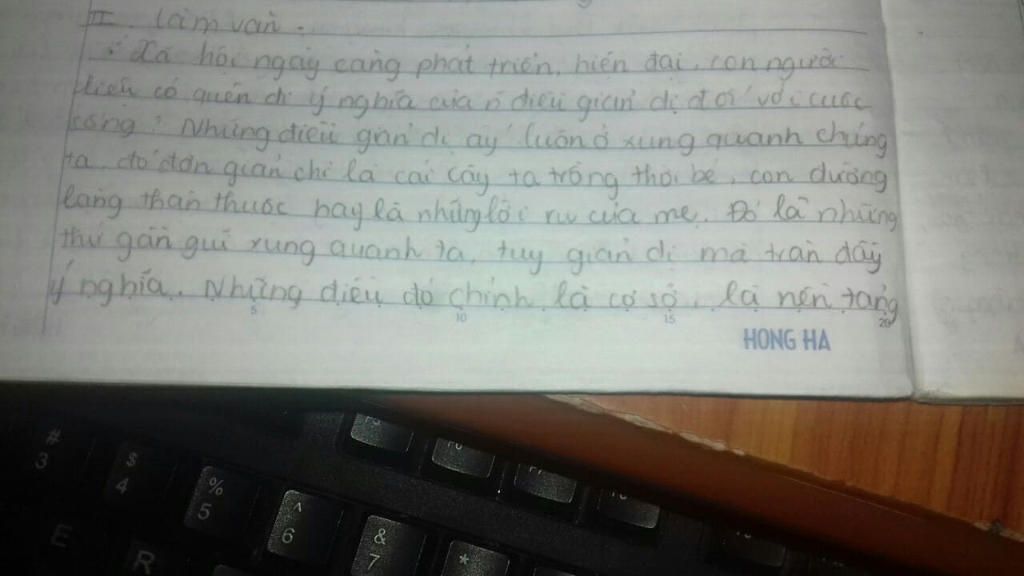 II Làm văn.
Xã hội ngày càng phát triển, hiện đại, con người
liệu có quên đi ý nghĩa của n điều giản dị đối với cuộc
sống? Những điều giản dị ấy luôn ở xung quanh chúng
ta, đó đơn giản chỉ là cái cây ta trồng thời bé, con đường
làng thân thuộc hay là những lời ru của mẹ. Đó là những
thứ gần gũi xung quanh ta, tuy giản dị mà tràn đầy
ý nghĩa. Những điều đó chính là cơ sở, là nền tảng
5 10 15 20
HONG HA
# 3
$ 4
% 5
^ 6
& 7
*
E R